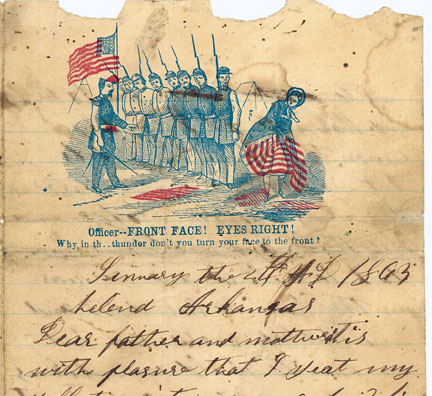 Officer--FRONT FACE! EYES RIGHT!
Why in th..thunder don't you turn your face to the front!
January the 1863
helend Arkangas
Dear father and mother it is
with plasure that I seat my